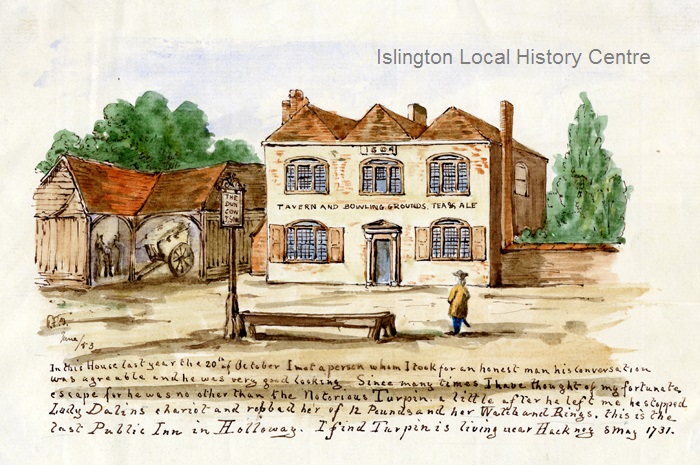 Islington Local History Centre
1624
TAVERN AND BOWLING GROUNDS. TEA & ALE
THE
DUN
COW
June/53
In this House last year the 20th of October I met a person whom I took for an honest man his conversation
was agreable and he was very good looking Since many times I have thought of my fortunate
escape for he was no other than the Notorious Turpin. a little after he left me he stopped
Lady Dalins chariot and robbed her of 12 Pounds and her Watch and Rings. this is the
last Public Inn in Holloway. I find Turpin is living near Hackney 8 May 1731.